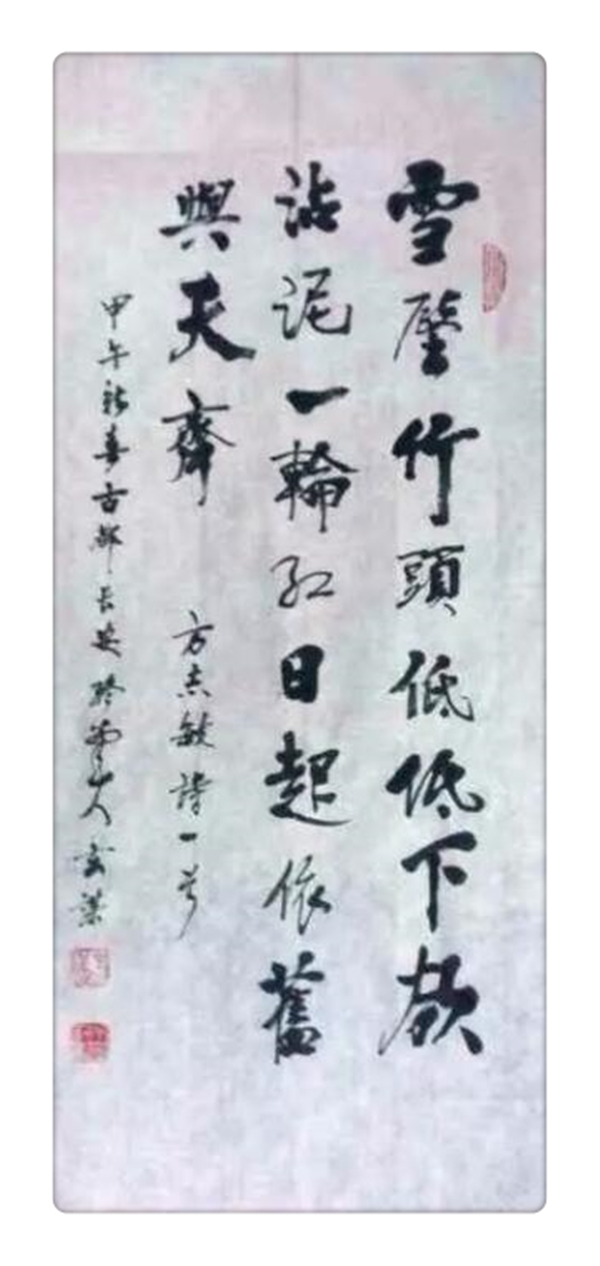 雪壓竹頭低低下欲
沾泥一輪紅日起依舊
與天齊 方志敏詩一首
甲午新春古都長安終南山人玄